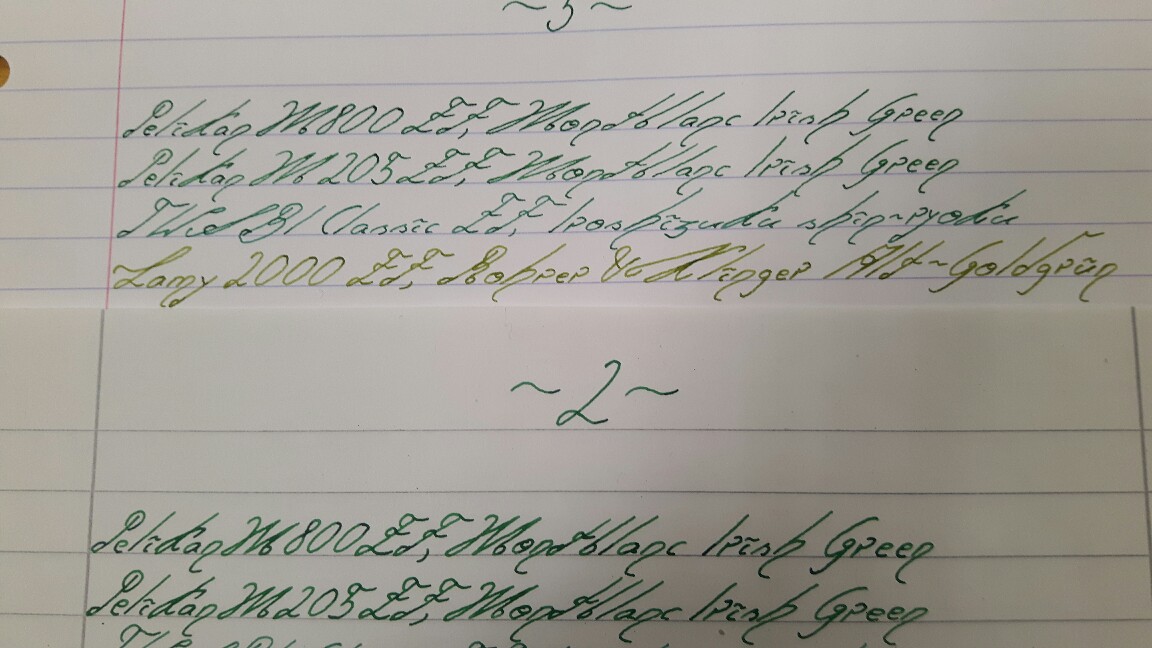 ~3~
Pelikan M800 EF, Montblanc Irish Green
Pelikan M205 EF, Montblanc Irish Green
TWSBI Classic EF, Iroshizuku shin-ryoku
Lamy 2000 EF, Rohrer & Klinger Alt-Goldgrün
~2~
Pelikan M800 EF, Montblanc Irish Green
Pelikan M205 EF, Montblanc Irish Green